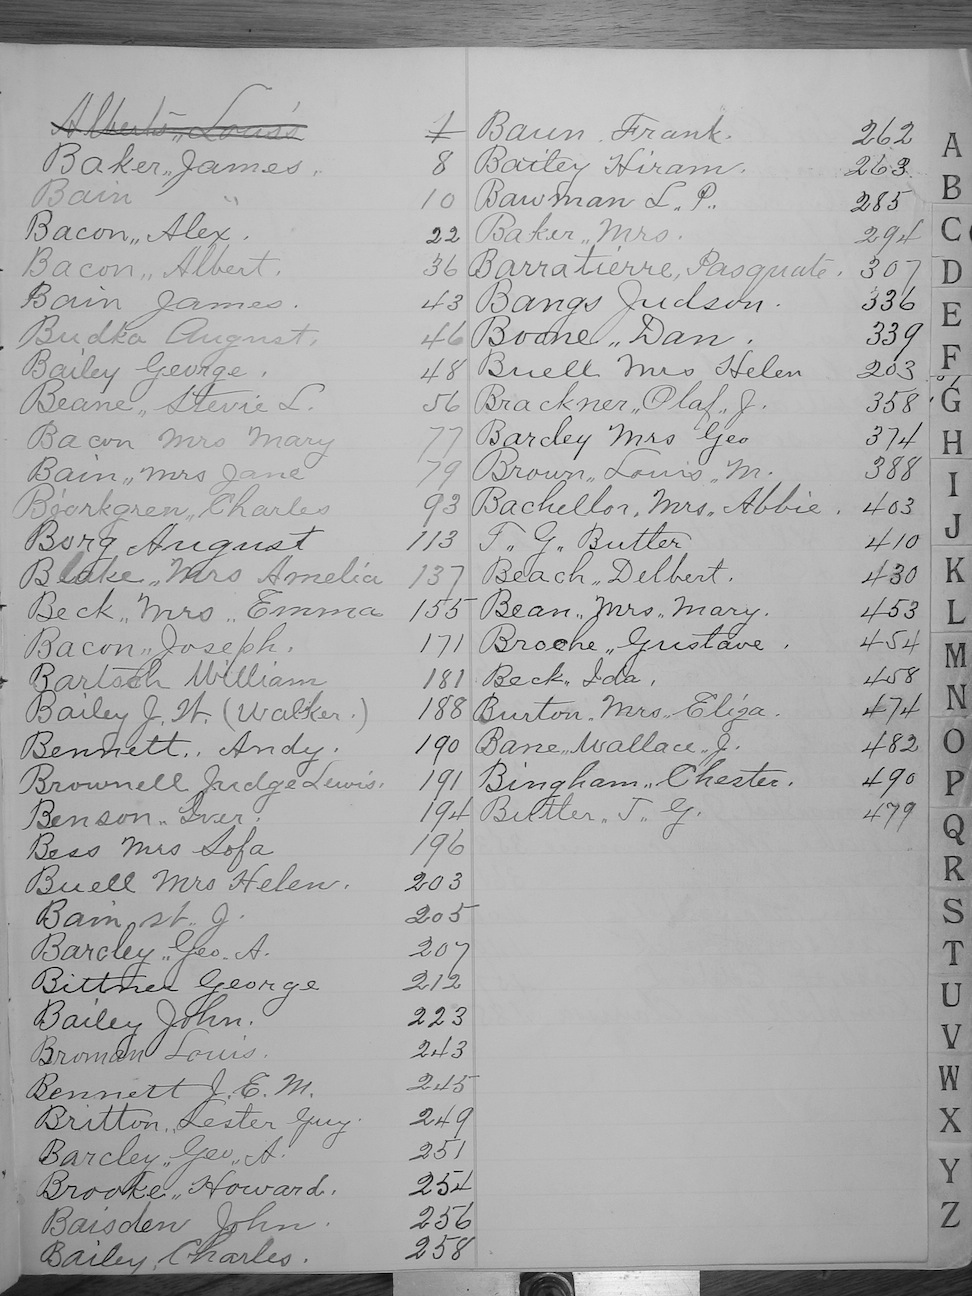 Alberts,, Louis 1
Baker,, James. 8
Bain " 10
Bacon,, Alex. 22
Bacon,, Albert. 36
Bain James. 43
Budka August. 46
Bailey George. 48
Beane,, Stevie L. 56
Bacon Mrs Mary 77
Bain,, Mrs Jane 79
Bjorkgren,, Charles 93
Borg August 113
Blake,, Mrs Amelia 137
Beck,, Mrs,, Emma 155
Bacon,, Joseph. 171
Bartsch William 181
Bailey J. W. (Walker.) 188
Bennett,, Andy. 190
Brownell Judge Lewis. 191
Benson,, Iver. 194
Bess Mrs Sofa 196
Buell Mrs Helen. 203
Bain, St. J. 205
Barcley,, Geo. A. 207
Bittner George 212
Bailey John. 223
Broman Louis. 243
Bennett J. E. M. 245
Britton,, Lester Guy. 249
Barcley,, Geo,, A. 251
Brooke,, Howard. 254
Baisden John. 256
Bailey, Charles. 258
Baun Frank. 262
Bailey Hiram. 263
Bawman L,, P,, 285
Baker,, Mrs. 294
Barratierre, Pasquate. 307
Bangs Judson. 336
Boone,, Dan. 339
Buell Mrs Helen 203
Brackner,, Olaf,, J. 358
Barcley Mrs Geo 374
Brown,, Louis,, M. 388
Bachellor, Mrs,, Abbie. 403
T,, G,, Butler 410
Beach,, Delbert. 430
Bean,, Mrs,, Mary. 453
Broche,, Gustave. 454
Beck,, Ida. 458
Burton,, Mrs,, Eliza. 474
Bane,, Wallace,, J. 482
Bingham,, Chester. 490
Butler,, T,, G. 479
A
B
C
D
E
F
G
H
I
J
K
L
M
N
O
P
Q
R
S
T
U
V
W
X
Y
Z